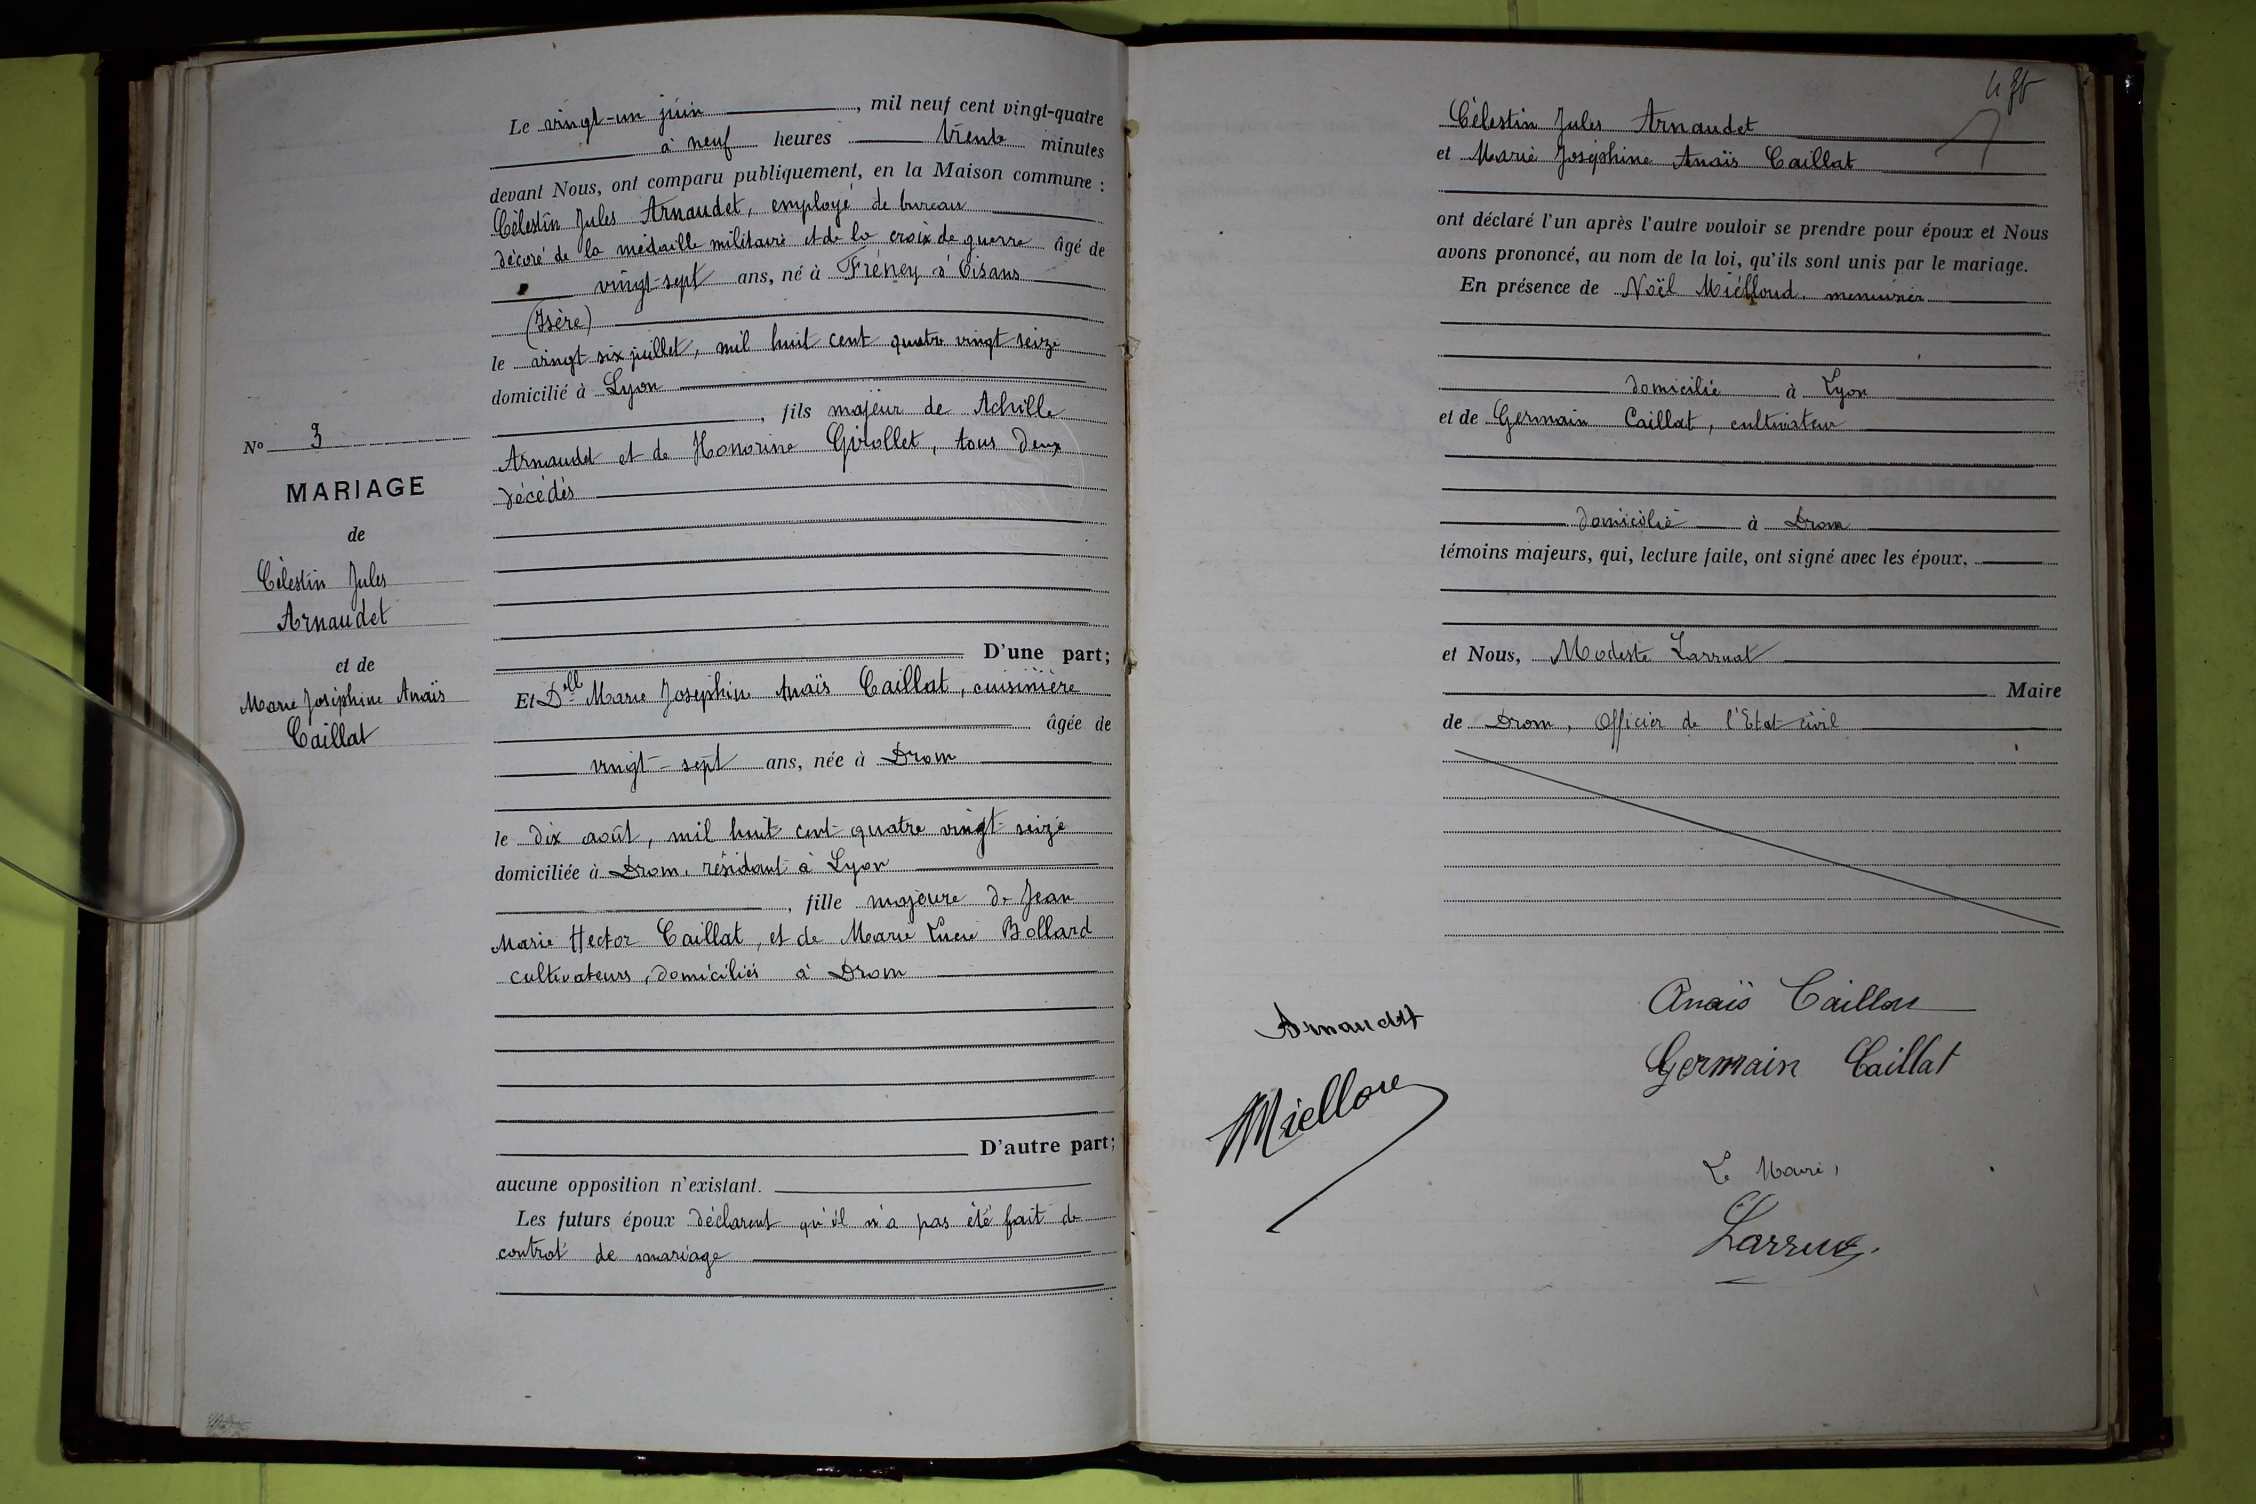 Le vingt-un juin, mil neuf cent vingt-quatre
à neuf heures trente minutes
devant Nous, ont comparu publiquement, en la Maison commune :
Célestin Jules Arnaudet, employé de bureau
décoré de la médaille militaire et de la croix de guerre âgé de
vingt-sept ans, né à Fréney d'Oisans
(Isère)
le vingt six juillet, mil huit cent quatre vingt seize
domicilié à Lyon
, fils majeur de Achille
Arnaudet et de Honorine Girollet, tous deux
décédés
D'une part;
Et Dell Marie Josephine Anaïs Caillat, cuisinière
âgée de
vingt-sept ans, née à Drom
le dix août, mil huit cent quatre vingt seize
domiciliée à Drom, résidant à Lyon
, fille majeure de Jean
Marie Hector Caillat, et de Marie Lucie Bollard
cultivateurs, domiciliés à Drom
D'autre part;
aucune opposition n'existant.
Les futurs époux déclarent qu'il n'a pas été fait de
contrat de mariage
No 3
MARIAGE
de
Célestin Jules
Arnaudet
et de
Marie Joséphine Anaïs
Caillat
Célestin Jules Arnaudet
et Marie Joséphine Anaïs Caillat
ont déclaré l'un après l'autre vouloir se prendre pour époux et Nous
avons prononcé, au nom de la loi, qu'ils sont unis par le mariage.
En présence de Noël Miélloud, menuisier
domicilié à Lyon
et de Germain Caillat, cultivateur
domicilié à Drom
témoins majeurs, qui, lecture faite, ont signé avec les époux.
et Nous, Modeste Larruat
Maire
de Drom, Officier de l'Etat civil
Arnaudet
Anaïs Caillat
Germain Caillat
Le Maire,